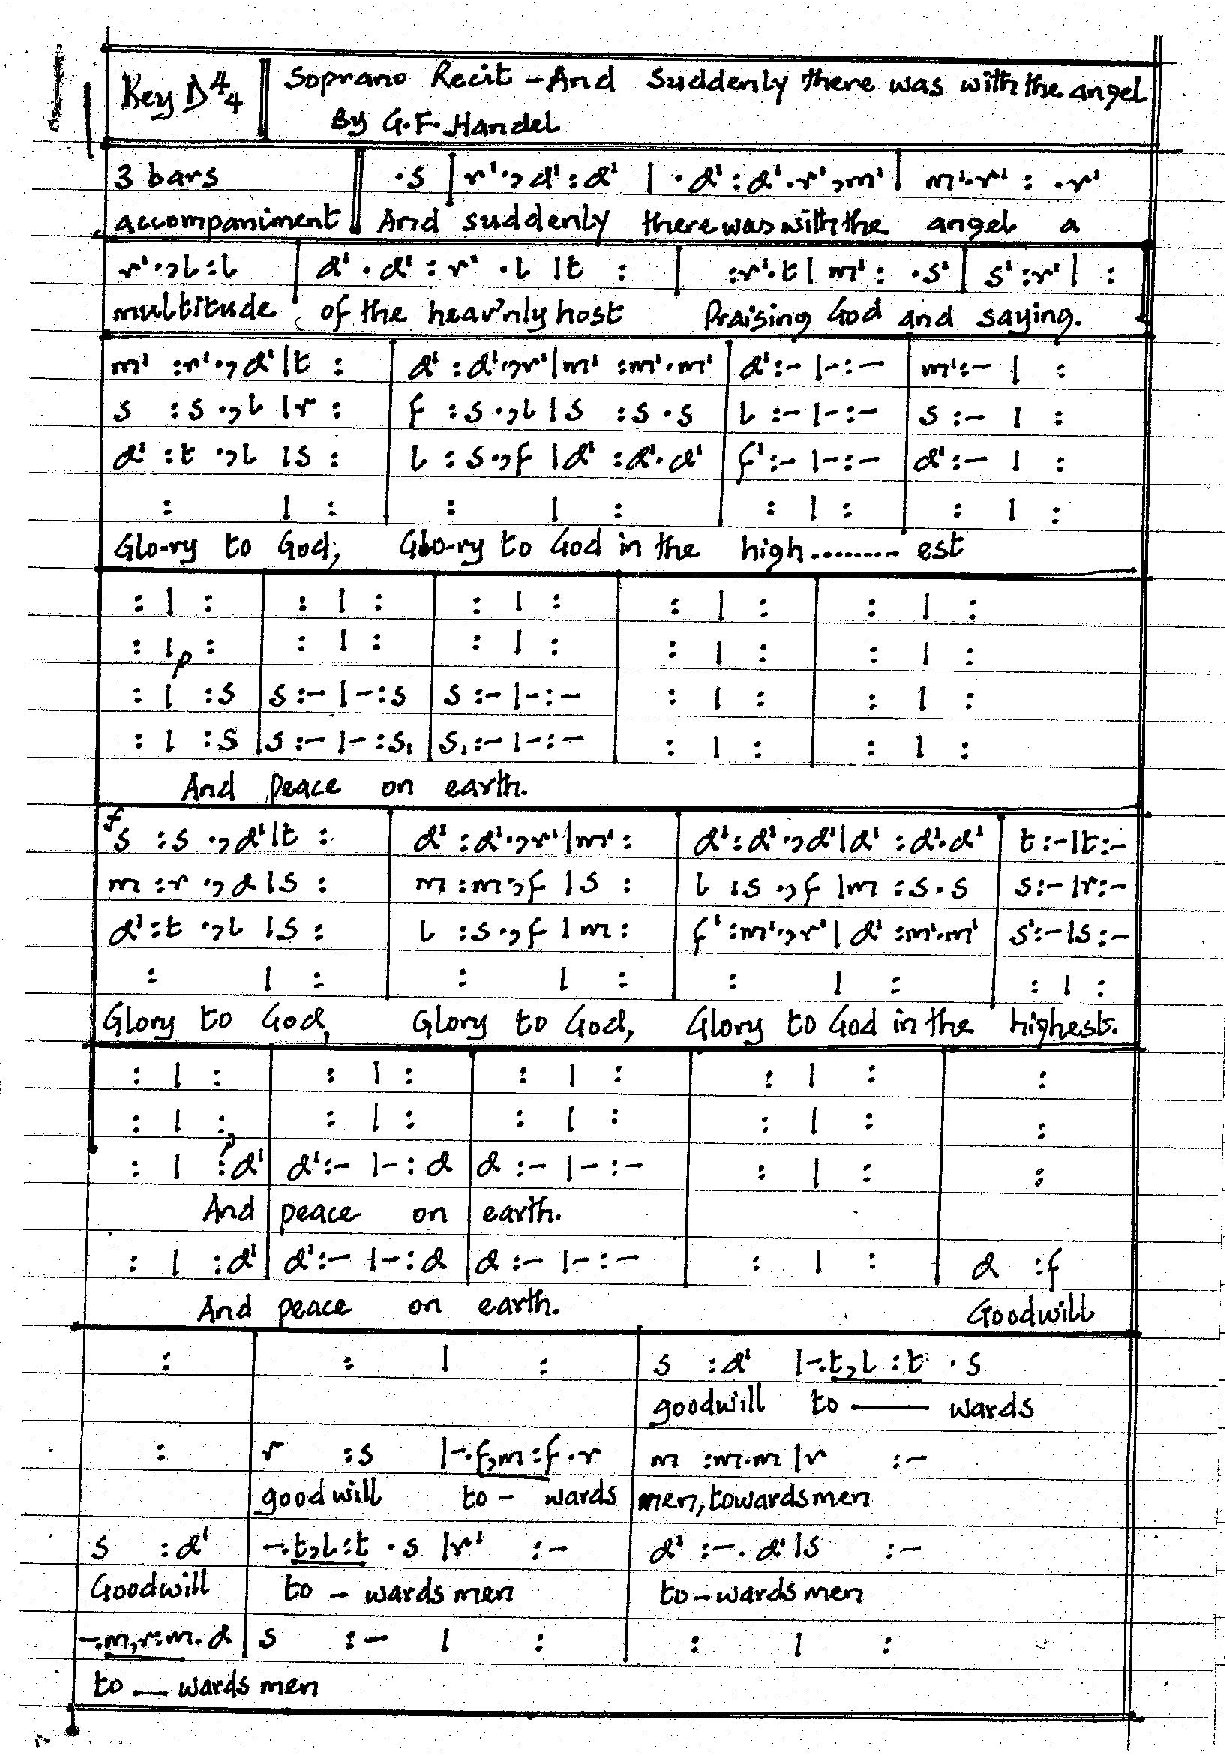 Key D 4/4 || Soprano Recit - And Suddenly there was with the angel
By G.F. Handel
3 bars || .s | r'.,d':d' | .d':d'.r',m' | m'.r': .r'
accompaniment || And suddenly there was with the angel a
r'.,l:l | d'.d':r'.l |t : | :r'.t| m': .s' | s':r'| :
multitude of the heav'nly host Praising God and saying.
m' :r'.,d'|t : | d' :d'.,r'|m' :m'.m' | d':-|-:- | m':- | :
s :s.,l |r : | f :s.,l |s :s.s | l :-|-:- | s:- | :
d' :t.,l |s : | l :s.,f |d' :d'.d' | f':-|-:- | d':- | :
: | : | : | : | : | : | : | :
Glo-ry to God, Glo-ry to God in the high........ est
: | : | : | : | : | : | : | : | : | :
: | : | : | : | : | : | : | : | : | :
p
: | :s | s:-|-:s | s:-|-:- | : | : | : | :
: | :s | s:-|-:s, | s,:-|-:- | : | : | : | :
And peace on earth.
f
s :s.,d'|t : | d' :d'.,r'|m' : | d':d'.,d'|d' :d'.d' | t:-|t:-
m :r.,d |s : | m :m.,f |s : | l :s.,f |m :s.s | s:-|r:-
d':t.,l |s : | l :s.,f |m : | f':m'.,r'|d' :m'.m' | s':-|s:-
: | : | : | : | : | : | : | :
Glory to God, Glory to God, Glory to God in the highest.
: | : | : | : | : | : | : | : | :
: | : | : | : | : | : | : | : | :
p
: | :d' | d':-|-:d | d:-|-:- | : | : | :
And peace on earth.
: | :d' | d':-|-:d | d:-|-:- | : | : | d :f
And peace on earth. Goodwill
: | : | : | s :d' |-.t,l:t.s
goodwill to —— wards
: | r :s |-.f,m:f.r | m :m.m |r :-
goodwill to - wards men, towards men
s :d' | -.t,l:t.s |r' :- | d' :-.d'|s :-
Goodwill to - wards men to - wards men
-.m,r:m.d | s :- | : | : | :
to — wards men